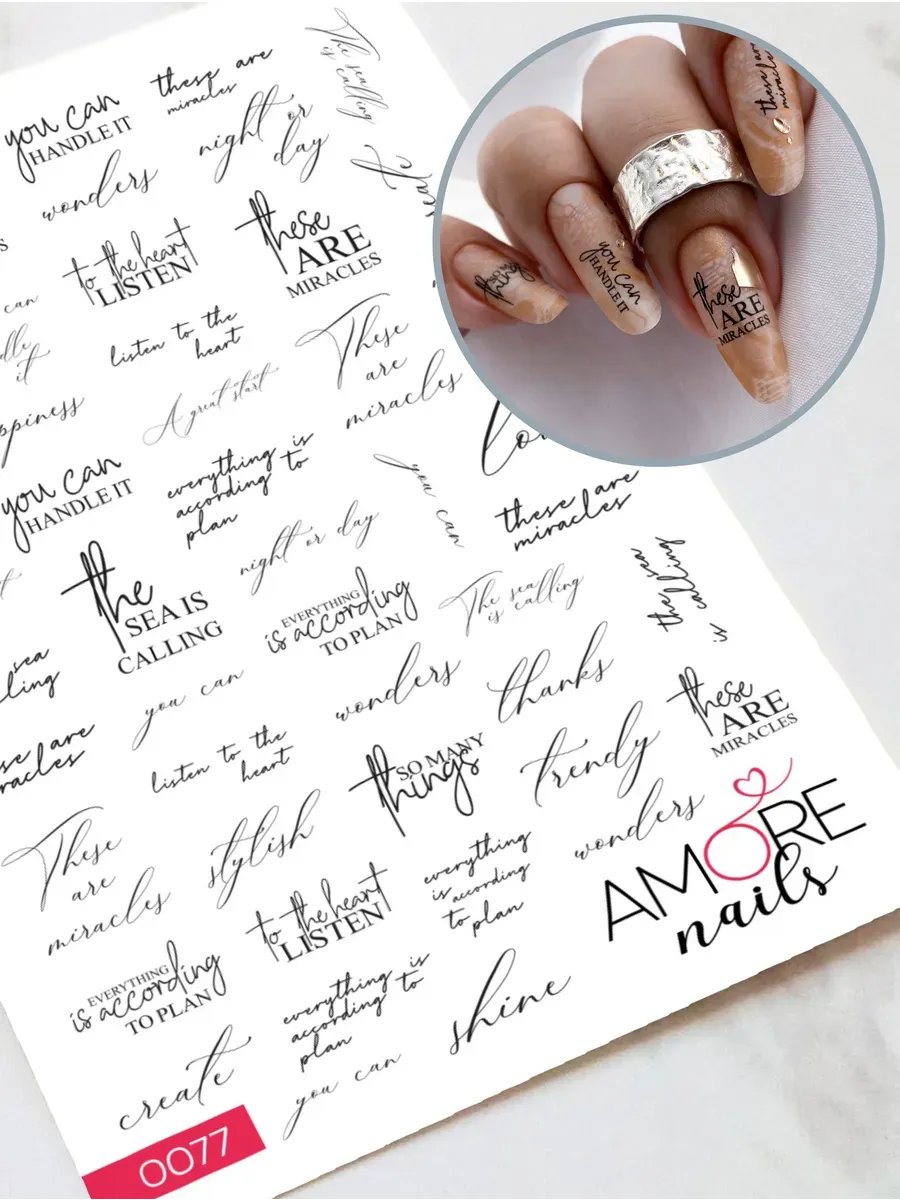 you can
HANDLE IT
these are
miracles
The sea
is calling
night or
day
wonders
to the heart
LISTEN
these
ARE
MIRACLES
can
it
listen to the
heart
These
are
miracles
A great start
you can
HANDLE IT
everything is
according to
plan
night or day
you can
these are
miracles
the
SEA IS
CALLING
EVERYTHING
is according
TO PLAN
The sea
is calling
the sea
is calling
sea
you can
wonders
thanks
these
ARE
MIRACLES
are
listen to the
heart
SO MANY
things
trendy
These
are
miracles
stylish
everything
is according
to plan
wonders
to the heart
LISTEN
EVERYTHING
is according
TO PLAN
everything is
according to
plan
shine
create
you can
AMORE
nails
0077
these are
miracles
things
you can
HANDLE IT
these
ARE
MIRACLES